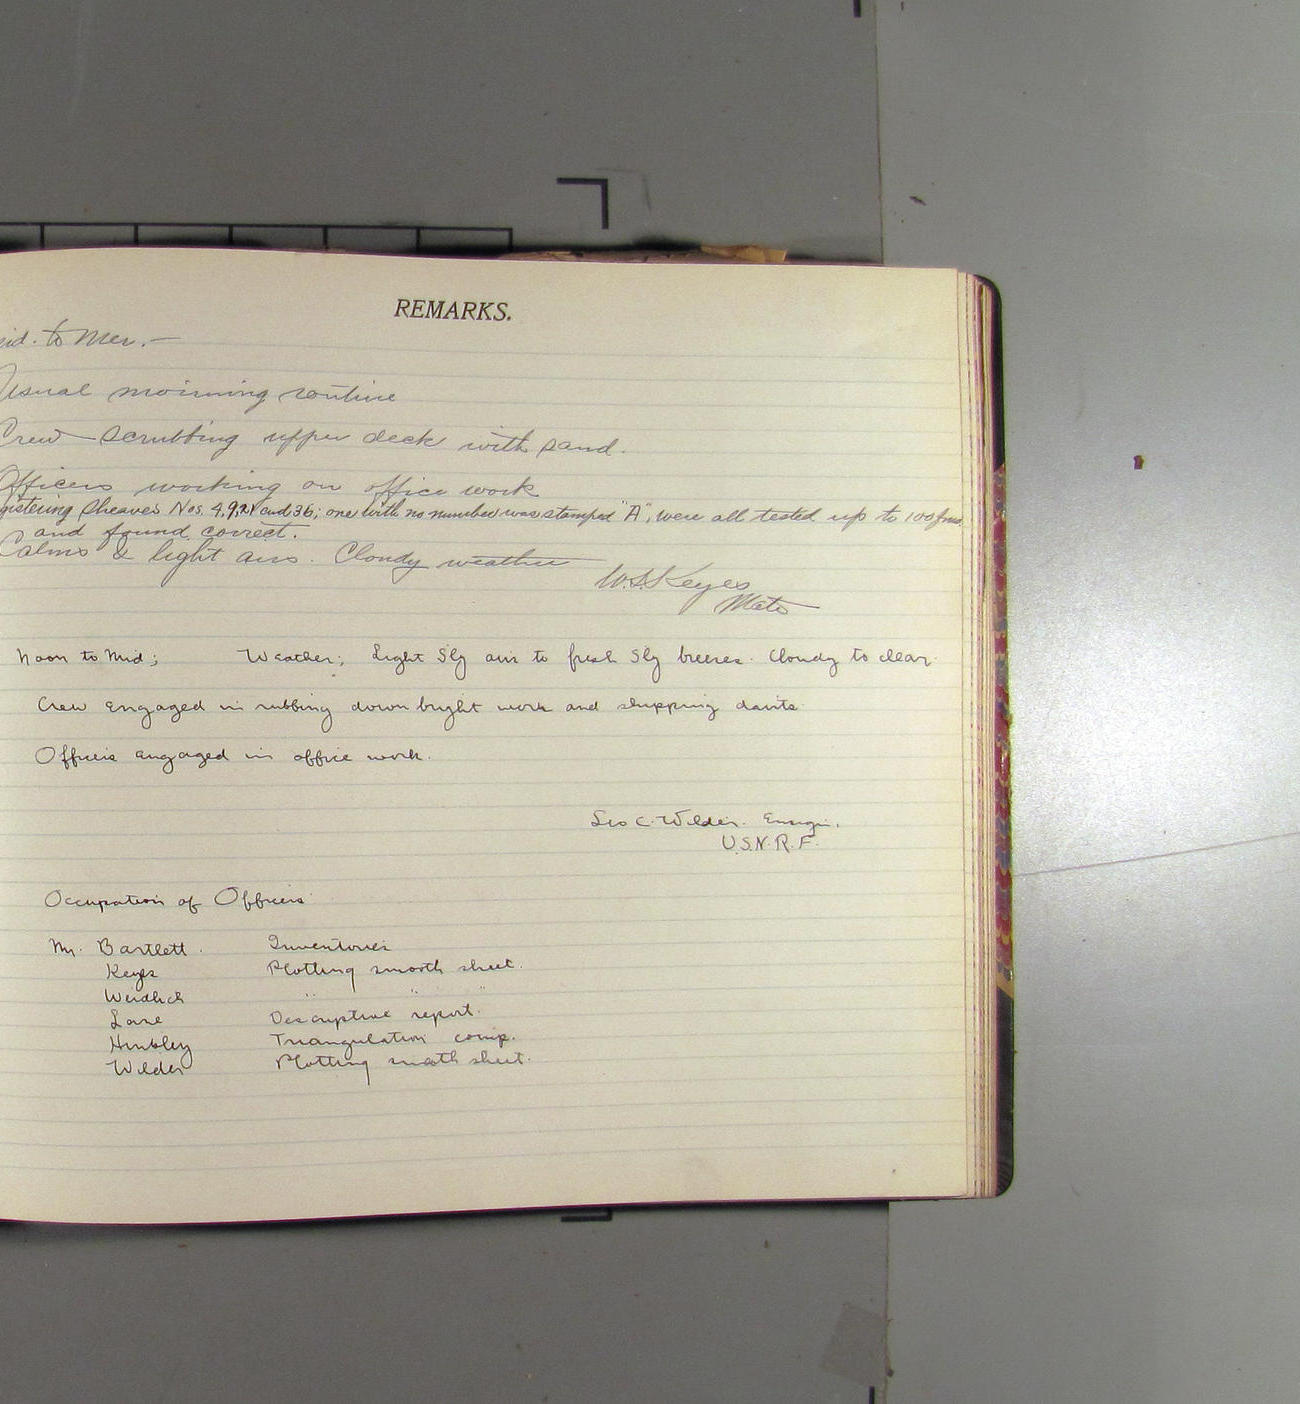 REMARKS.
id. to Mer.—
Usual morning routine
Crew scrubbing upper deck with sand.
Officers working on office work
gistering Sheaves Nos. 4, 9, 21 and 36; one with no number was stamped "A", were all tested up to 100 fms.
and found correct.
Calms & light airs. Cloudy weather
W.S. Keyes
Mate
Noon to Mid; Weather; Light Sly airs to fresh Sly breeze. Cloudy to clear.
Crew Engaged in rubbing down bright work and shipping davits
Officers engaged in office work.
Leo C. Wilder. Ensign.
U.S.N.R.F.
Occupation of Officers
Mr. Bartlett. Inventories
Keyes Plotting smooth sheet.
Weidlich " " "
Lane Descriptive report.
Hinkley Triangulation comp.
Wilder Plotting smooth sheet.